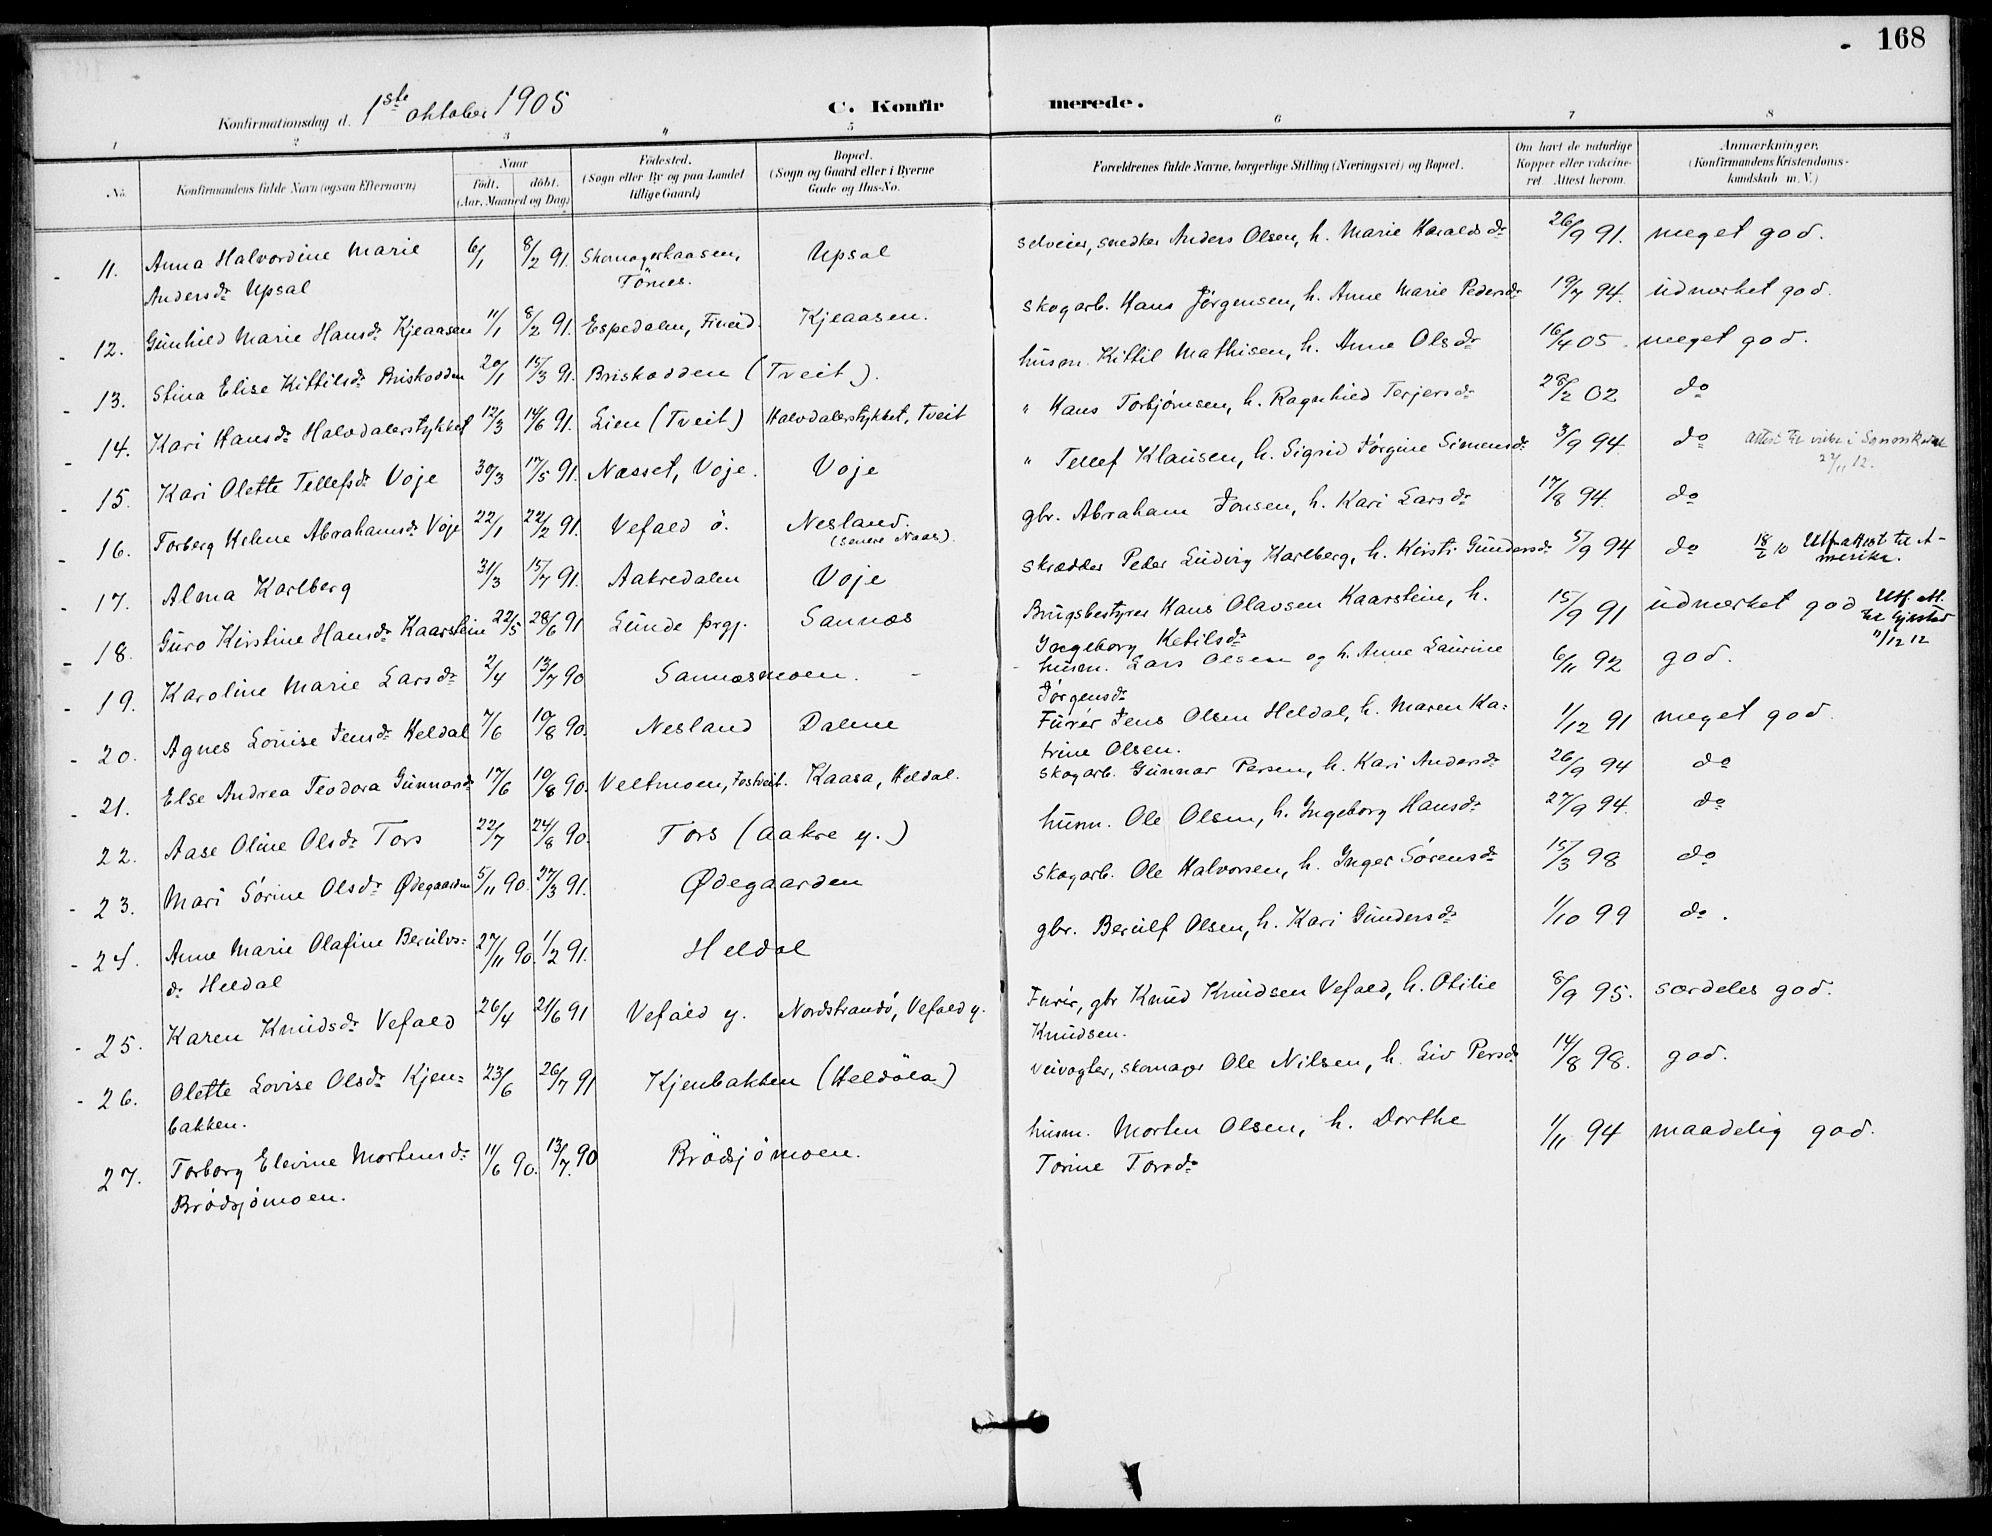 168
Konfirmationsdag d. 1ste oktober 1905 C. Konfir merede.
1 2 3 4 5 6 7 8
No. Konfirmandens fulde Navn (ogsaa Efternavn) Naar født. døbt. (Aar, Maaned og Dag) Fødested. (Sogn eller By og paa Landet tillige Gaard) Bopæl. (Sogn og Gaard eller i Byerne Gade og Hus-No. Forældrenes fulde Navne, borgerlige Stilling (Næringsvei) og Bopæl. Om havt de naturlige Kopper eller vakcineret. Attest herom. Anmærkninger. (Konfirmandens Kristendomskundskab m. V.)
11. Anna Halvordine Marie 6/1 8/2 91. Skomagerkaasen, Upsal selveier, snedker Anders Olsen, h. Marie Haraldsdr 26/9 91. meget god.
Andersdr Upsal Törnes.
12. Gunhild Marie Hansdr Kjeaasen 11/1 8/2 91. Espedalen, Fineid. Kjeaasen. skogarb. Hans Jörgensen, h. Anne Marie Pedersdr 19/7 94. udmerket god.
13. Stina Elise Kittilsdr Briskodden 20/1 15/3 91. Briskodden (Tveit). husm. Kittil Mathisen, h. Anne Olsdr 16/4 05. meget god.
14. Kari Hansdr Halvdalerstykket 12/3 14/6 91. Lien (Tveit) Halvdalerstykket, Tveit " Hans Torbjörnsen, h. Ragnhild Terjersdr 28/2 02 do
15. Kari Olette Tellefsdr Voje 30/3 17/5 91. Næsset, Voje. Voje " Tellef Klausen, h. Sigrid Jörgine Simensdr 3/9 94. do Attest til
16. Torberg Helene Abrahamsdr Voje 22/1 22/2 91. Vefald ö. Nesland. (senere Naas). gbr. Abraham Jonsen, h. Kari Larsdr 17/8 94. do
17. Alma Karlberg 31/3 15/7 91. Aakredalen Voje skrædder Peder Ludvig Karlberg, h. Kirsti Gundersdr 5/9 94 do 18/2 10 Utf.attest til A-
merika.
18. Guro Kirstine Hansdr Kaarstein 22/5 28/6 91 Lunde prgj. Sannæs Brugsbestyrer Hans Olavsen Kaarstein, h. 15/9 91 udmerket god Utf. att.
Ingeborg Ketilsdr til Gjerstad
11/12 12
19. Karoline Marie Larsdr 2/4 13/7 90 Sannæsmoen. husm. Lars Olsen og h. Anne Laurine 6/11 92 god.
Jörgensdr
20. Agnes Louise Jensdr Heldal 7/6 10/8 90. Nesland Dalene Furér Jens Olsen Heldal, h. Maren Ka= 1/12 91 meget god.
trine Olsen.
21. Else Andrea Teodora Gunnarsdr 17/6 10/8 90. Veltmoen, Fostveit. Kaasa, Heldal. skogarb. Gunnar Persen, h. Kari Andersdr 26/9 94 do
22. Aase Oline Olsdr Tors 22/7 24/8 90. Tors (Aakre y.) husm. Ole Olsen, h. Ingeborg Hansdr 27/9 94. do
23. Mari Sörine Olsdr Ødegaarden 5/11 90. 22/3 91. Ødegaarden skogarb. Ole Halvorsen, h. Inger Sörensdr 15/3 98 do
24. Anne Marie Olafine Berulvs= 27/11 90. 1/2 91. Heldal gbr. Berulf Olsen, h. Kari Gundersdr 1/10 99 do.
dr Heldal
25. Karen Knudsdr Vefald 26/4 21/6 91 Vefald y. Nordstrandö, Vefald y. Furér, gbr Knud Knudsen Vefald, h. Otilie 8/9 95. særdeles god.
Knudsen.
26. Olette Lovise Olsdr Kjen= 23/6 26/7 91 Kjenbakken (Heldöla) veivogter, skomager Ole Nilsen, h. Liv Persdr 14/8 98. god.
bakken.
27. Torborg Elevine Mortensdr 11/6 90. 13/7. 90 Brödsjömoen. husm. Morten Olsen, h. Dorthe 1/11 94 maadelig god.
Brödsjömoen. Torine Torsdr